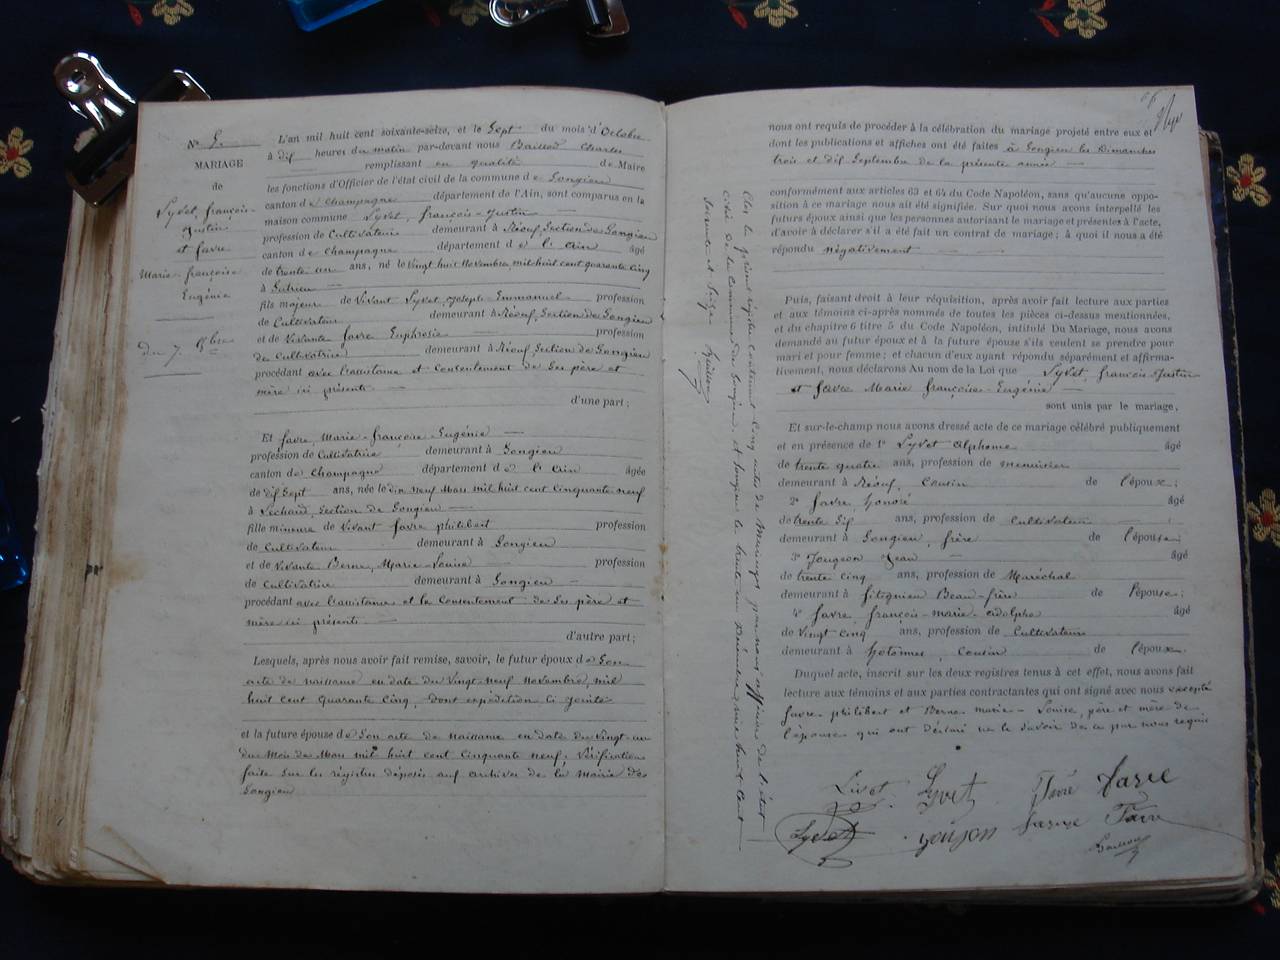 Nº 5.
MARIAGE
de
Lyvet, françois-
Justin
et favre
Marie-françoise
Eugénie
du 7. 8bre
L'an mil huit cent soixante-seize, et le Sept du mois d'Octobre
à dix heures du matin par-devant nous Baillod Charles
remplissant en qualité de Maire
les fonctions d'Officier de l'état civil de la commune de Songieu
canton de Champagne département de l'Ain, sont comparus en la
maison commune Lyvet, françois-Justin
profession de Cultivateur demeurant à Réouf, Section de Songieu
canton de Champagne département de l'ain âgé
de trente un ans, né le Vingt huit Novembre, mil huit cent quarante cinq
à Sutrieu
fils majeur de Vivant Lyvet, Joseph-Emmanuel profession
de Cultivateur demeurant à Réouf, Section de Songieu
et de Vivante favre Euphrosie profession
de Cultivatrice demeurant à Réouf Section de Songieu
procédant avec l'assistance et Consentement de Ses père et
mère ici présents
d'une part;
Et favre, Marie-françoise-Eugénie
profession de Cultivatrice demeurant à Songieu
canton de Champagne département de l'ain âgée
de dix Sept ans, née le dix neuf Mars mil huit cent Cinquante neuf
à Section de Songieu
fille mineure de Vivant favre philibert profession
de Cultivateur demeurant à Songieu
et de Vivante Berne, Marie-Louise profession
de Cultivatrice demeurant à Songieu
procédant avec l'assistance et le Consentement de Ses père et
mère ici présents
d'autre part;
Lesquels, après nous avoir fait remise, savoir, le futur époux de Son
acte de naissance en date du Vingt-neuf Novembre, mil
huit cent Quarante Cinq, dont expédition ci jointe
et la future épouse de Son acte de naissance en date du Vingt-un
du Mois de Mars mil huit cent Cinquante neuf, Vérification
faite Sur les registres déposés aux archives de la Mairie de
Songieu
nous ont requis de procéder à la célébration du mariage projeté entre eux et
dont les publications et affiches ont été faites à Songieu les Dimanches
trois et dix Septembre de la présente année
conformément aux articles 63 et 64 du Code Napoléon, sans qu'aucune oppo-
sition à ce mariage nous ait été signifiée. Sur quoi nous avons interpellé les
futurs époux ainsi que les personnes autorisant le mariage et présentes à l'acte,
d'avoir à déclarer s'il a été fait un contrat de mariage; à quoi il nous a été
répondu négativement
Puis, faisant droit à leur réquisition, après avoir fait lecture aux parties
et aux témoins ci-après nommés de toutes les pièces ci-dessus mentionnées,
et du chapitre 6 titre 5 du Code Napoléon, intitulé Du Mariage, nous avons
demandé au futur époux et à la future épouse s'ils veulent se prendre pour
mari et pour femme; et chacun d'eux ayant répondu séparément et affirma-
tivement, nous déclarons Au nom de la Loi que Lyvet, françois-Justin
et favre Marie françoise-Eugénie
sont unis par le mariage,
Et sur-le-champ nous avons dressé acte de ce mariage célébré publiquement
et en présence de 1º Lyvet alphonse âgé
de trente quatre ans, profession de menuisier
demeurant à Réouf, Cousin de l'époux;
2º favre, honoré âgé
de trente Six ans, profession de Cultivateur
demeurant à Songieu, frère de l'épouse
3º Jean âgé
de trente cinq ans, profession de Maréchal
demeurant à fitignieu Beau-frère de l'épouse;
4º favre, françois-marie-adolphe âgé
de Vingt Cinq ans, profession de Cultivateur
demeurant à hotonnes, Cousin de l'époux.
Duquel acte, inscrit sur les deux registres tenus à cet effet, nous avons fait
lecture aux témoins et aux parties contractantes qui ont signé avec nous excepté
favre philibert et Berne marie-Louise, père et mère de
l'épouse qui ont déclaré ne le Savoir de ce par nous requis
Livet Lyvet Favre
Lyvet
Baillod
Clos le présent registre Contenant Cinq actes de Mariages par nous officier de l'état
civil de la Commune de Songieu, et Songieu le trente un Décembre, mil huit cent
Soixante et Seize Baillod